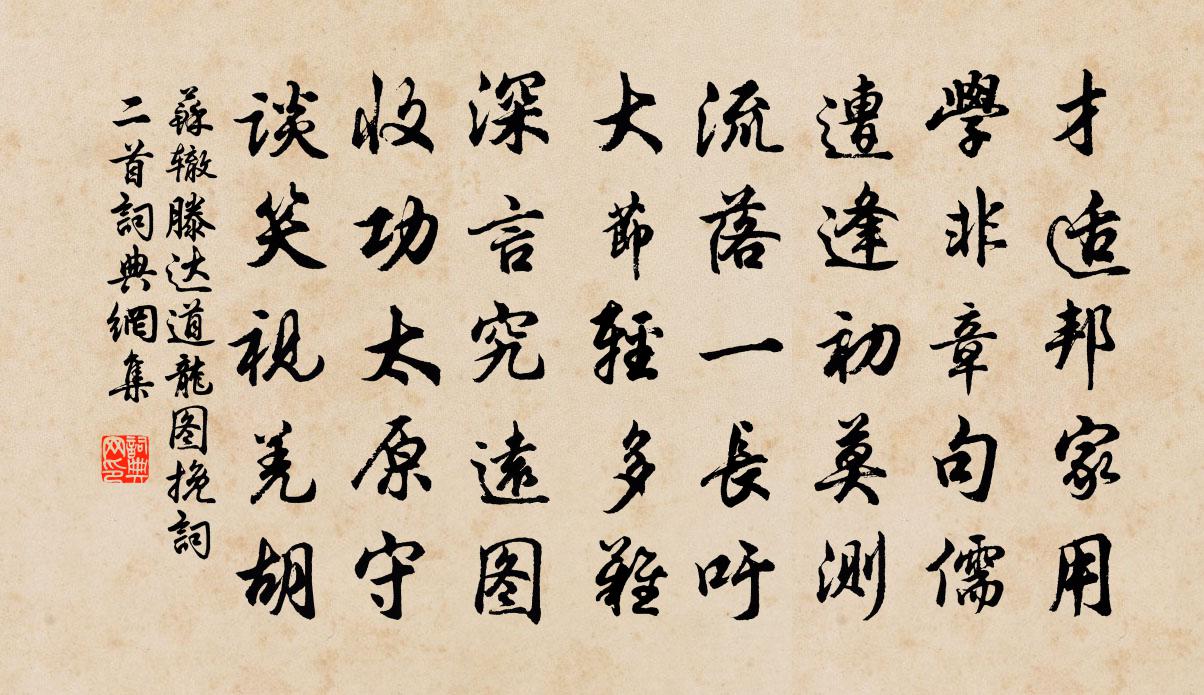 才适邦家用
學非章句儒
遭逢初莫測
流落一長吁
大節輕多難
深言究遠图
收功太原守
談笑視羌胡
蘇辙滕达道龍图挽詞
二首詞典網集
詞典
网印